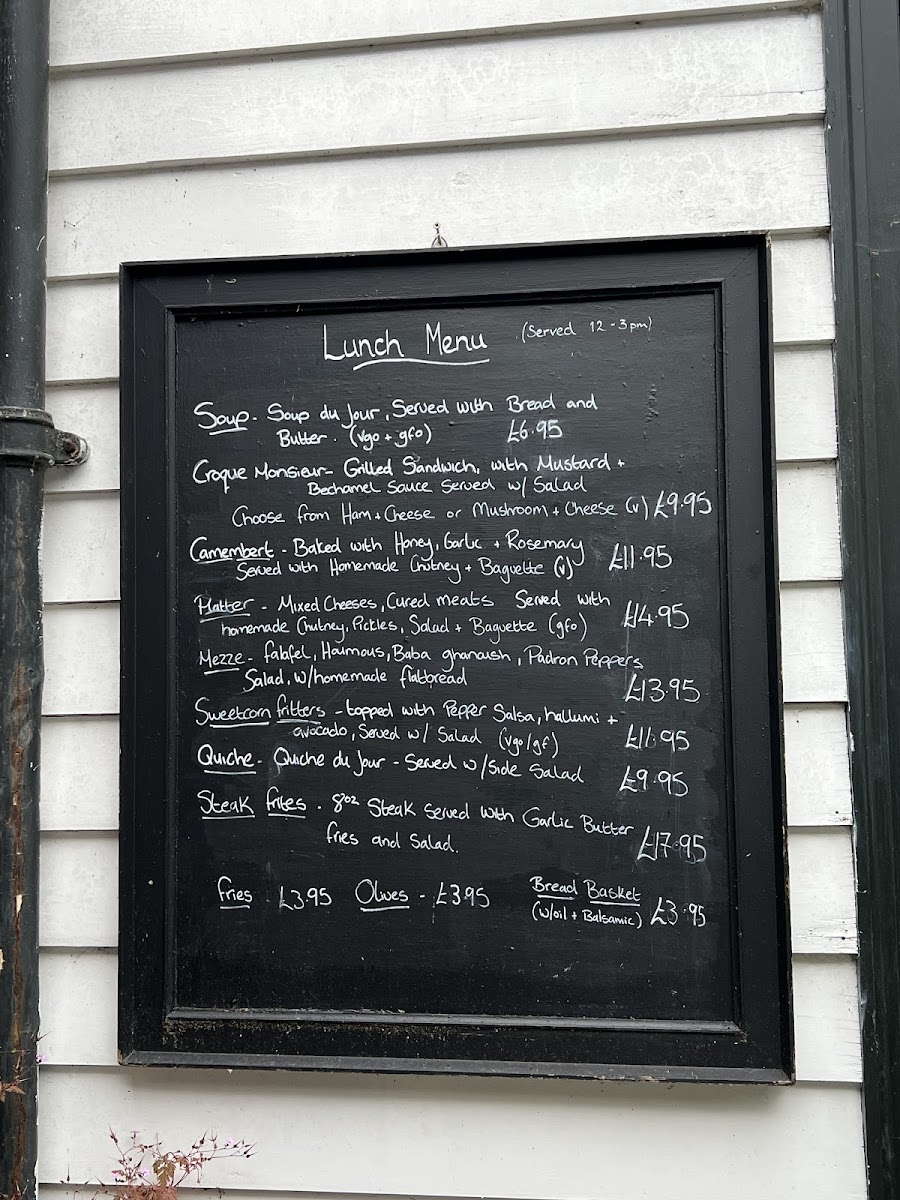 Lunch Menu (Served 12-3pm)
Soup - Soup du Jour, Served with Bread and
Butter. (vgo + gfo) £6.95
Croque Monsieur - Grilled Sandwich, with Mustard +
Bechamel Sauce Served w/ Salad
Choose from Ham + Cheese or Mushroom + Cheese (v) £9.95
Camembert - Baked with Honey, Garlic + Rosemary
Served with Homemade Chutney + Baguette (v) £11.95
Platter - Mixed Cheeses, Cured meats Served with
homemade Chutney, Pickles, Salad + Baguette (gfo) £14.95
Mezze - falafel, Houmous, Baba ghanoush, Padron Peppers
Salad, w/homemade flatbread £13.95
Sweetcorn fritters - topped with Pepper Salsa, hallumi +
avocado, Served w/ Salad (vgo/gf) £11.95
Quiche - Quiche du Jour - Served w/side Salad £9.95
Steak frites - 8oz Steak served with Garlic Butter
fries and Salad. £17.95
fries - £3.95 Olives - £3.95 Bread Basket
(w/oil + Balsamic) £3.95